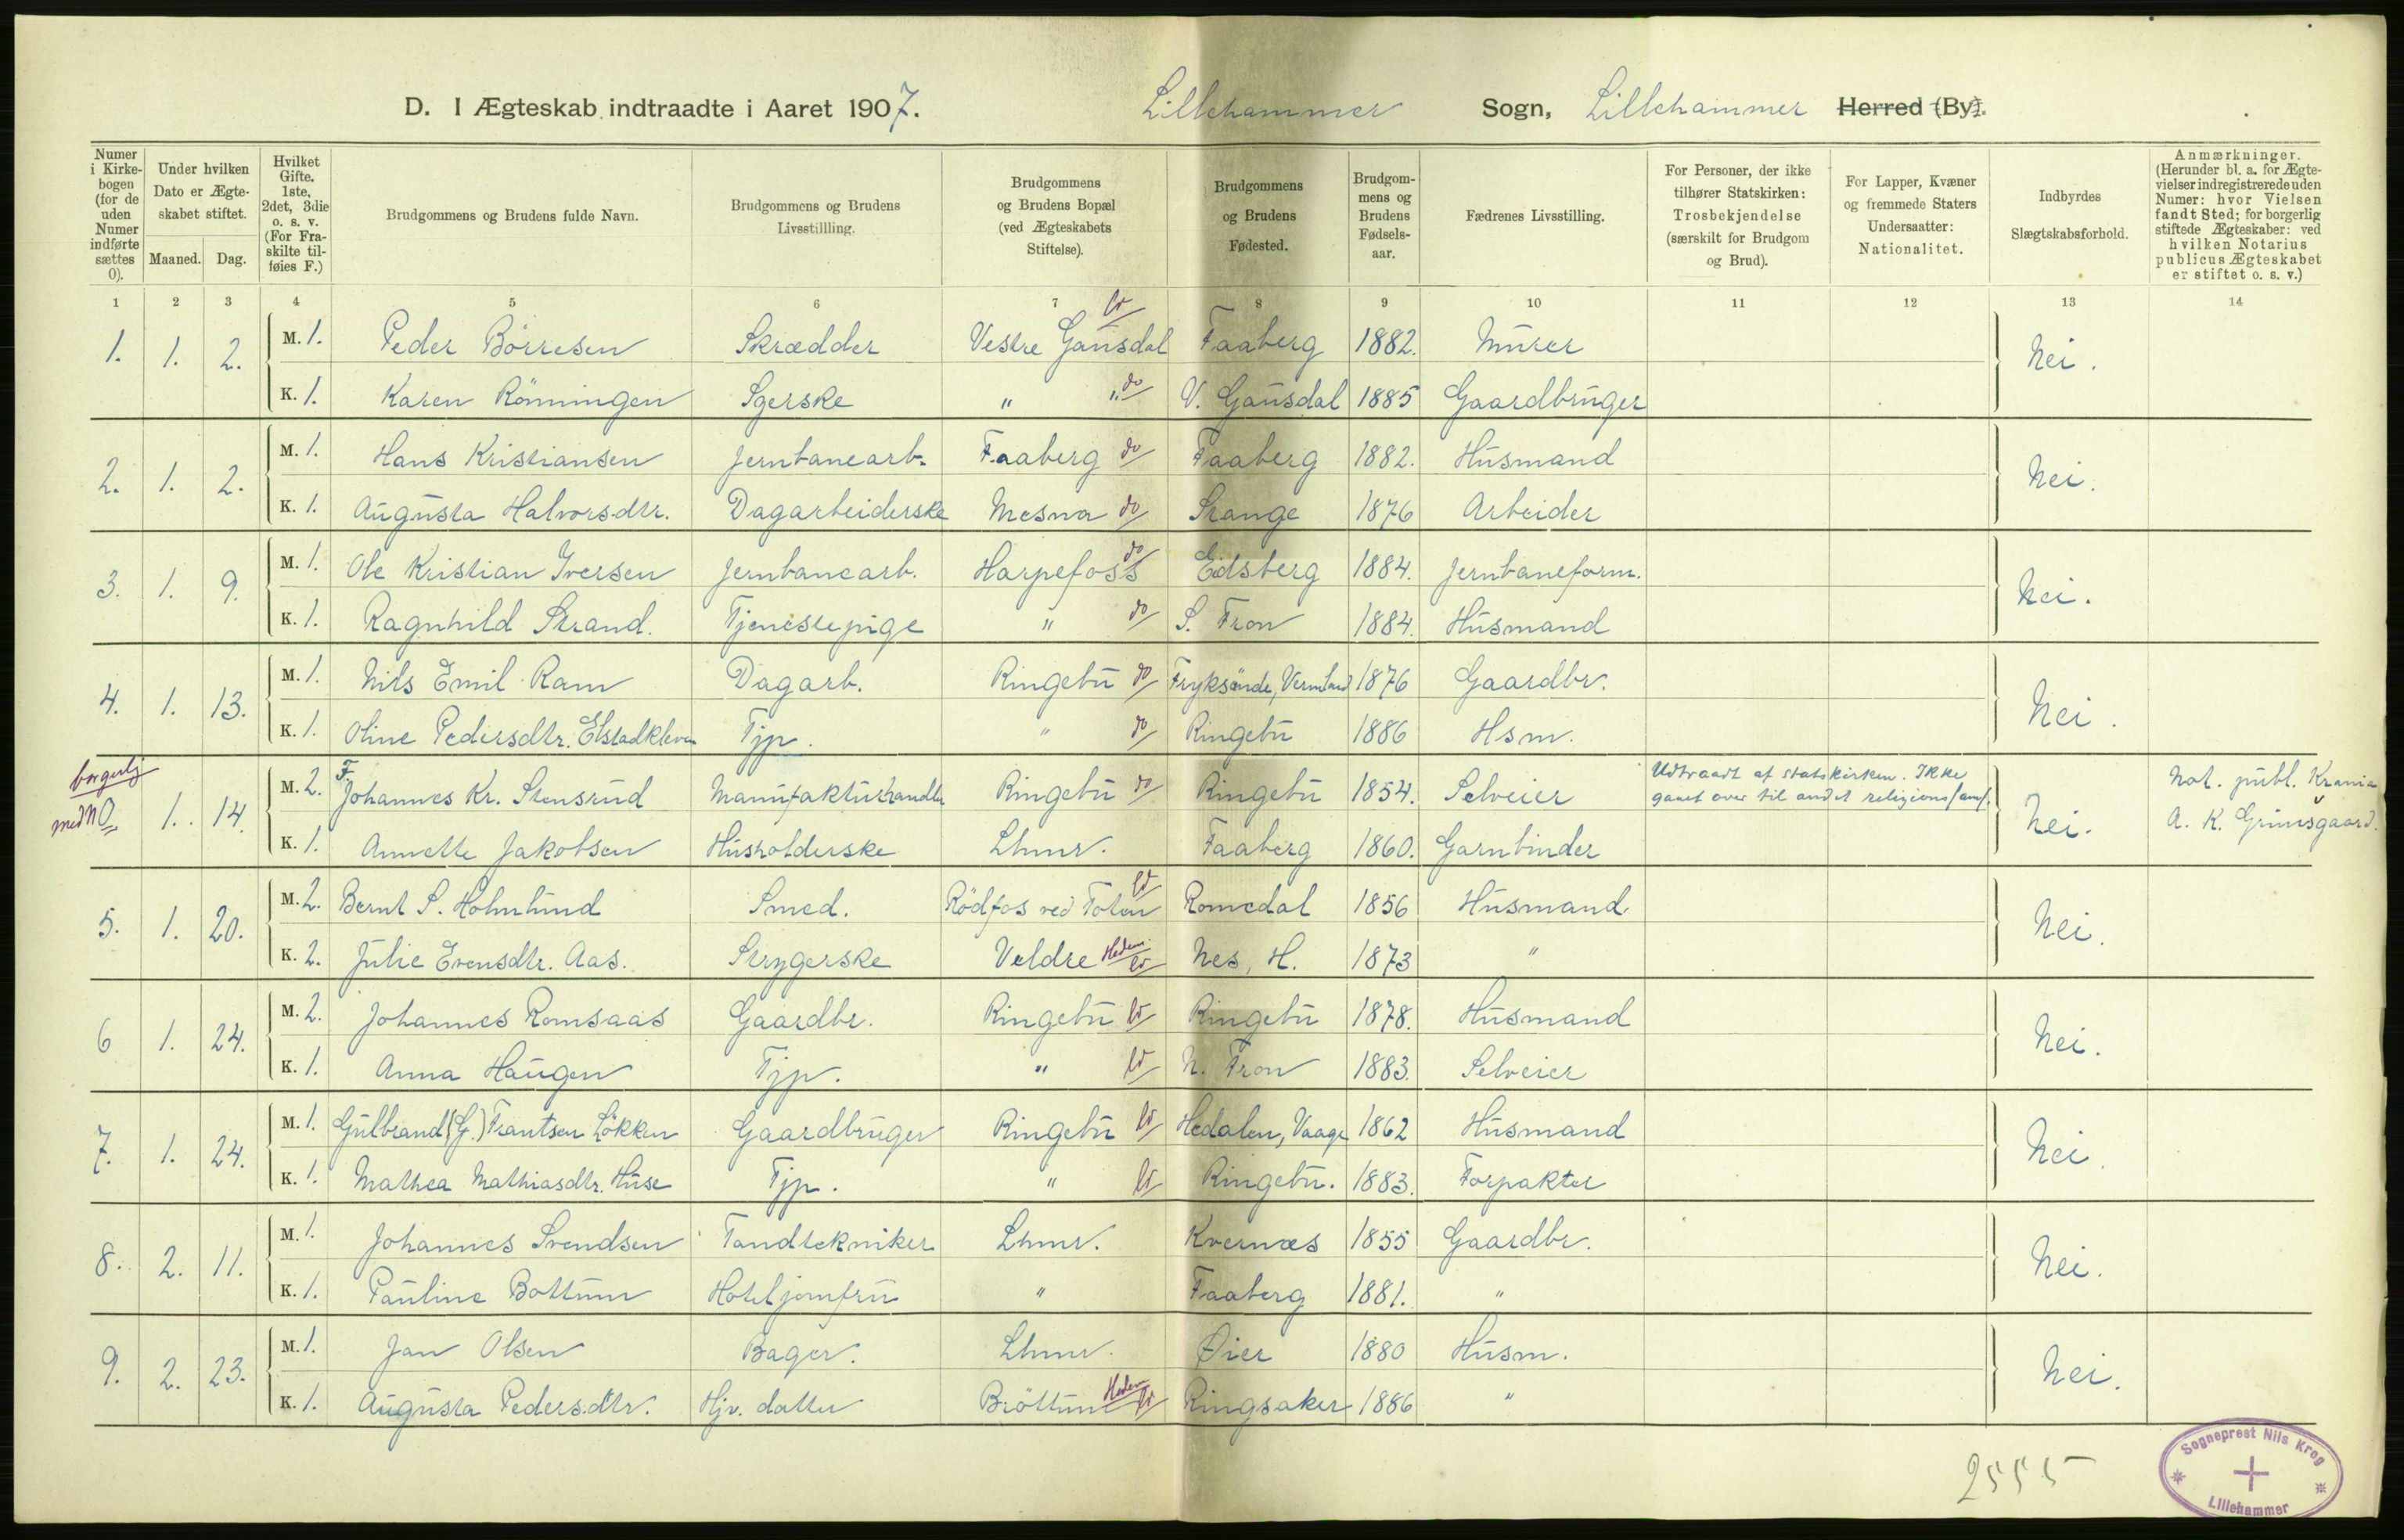 D. I Ægteskab indtraadte i Aaret 1907. Lillehammer Sogn, Lillehammer Herred (By).
Numer i Kirkebogen (for de uden Numer indførte sættes 0).
Under hvilken Dato er Ægteskabet stiftet.
Maaned. Dag.
Hvilket Gifte. 1ste, 2det, 3die o. s. v. (For Fraskilte tilføies F.)
Brudgommens og Brudens fulde Navn.
Brudgommens og Brudens Livsstillling.
Brudgommens og Brudens Bopæl (ved Ægteskabets Stiftelse).
Brudgommens og Brudens Fødested.
Brudgommens og Brudens Fødselsaar.
Fædrenes Livsstilling.
For Personer, der ikke tilhører Statskirken: Trosbekjendelse (særskilt for Brudgom og Brud).
For Lapper, Kvæner og fremmede Staters Undersaatter: Nationalitet.
Indbyrdes Slægtskabsforhold.
Anmærkninger. (Herunder bl. a. for Ægtevielser indregistrerede uden Numer: hvor Vielsen fandt Sted; for borgerlig stiftede Ægteskaber: ved hvilken Notarius publicus Ægteskabet er stiftet o. s. v.)
1 2 3 4 5 6 7 8 9 10 11 12 13 14
1. 1. 2. M. 1. Peder Börresen Skrædder Vestre Gausdal Faaberg 1882. Murer Nei.
K. 1. Karen Rönningen Syerske " " do V. Gausdal 1885 Gaardbruger
2. 1. 2. M. 1. Hans Kristiansen Jernbanearb. Faaberg do Faaberg 1882. Husmand Nei.
K. 1. Augusta Halvorsdtr. Dagarbeiderske Mesna do Stange 1876 Arbeider
3. 1. 9. M. 1. Ole Kristian Iversen Jernbanearb. Harpefoss do Eidsberg 1884. Jernbaneform. Nei.
K. 1. Ragnhild Strand. Tjenestepige " do S. Fron 1884. Husmand
4. 1. 13. M. 1. Nils Emil Ram Dagarb. Ringebu do Fryksände, Vermland 1876 Gaardbr. Nei.
K. 1. Oline Pedersdtr. Elstadkleven Tjp. " do Ringebu 1886 Hsm.
borgerlig
med N 0 1. 14. M. 2. F. Johannes Kr. Stensrud Manufakturhandler Ringebu do Ringebu 1854. Selveier Udtraadt af statskirken. Ikke gaaet over til andet religionssamf. Nei. Not. publ. Krania A. K. Grimsgaard.
K. 1. Annette Jakobsen Husholderske Lhmr. Faaberg 1860. Garnbinder
5. 1. 20. M. 2. Bernt S. Holmlund Smed. Rödfos ved Toten Romedal 1856 Husmand Nei.
K. 2. Julie Evensdtr. Aas. Strygerske Veldre Hedem. Nes, H. 1873 "
6 1. 24. M. 2. Johannes Romsaas Gaardbr. Ringebu Ringebu 1878. Husmand Nei.
K. 1. Anna Haugen Tjp. " N. Fron 1883. Selveier
7. 1. 24. M. 1. Gulbrand (G.) Frantsen Lökken Gaardbruger Ringebu Hedalen, Vaage 1862 Husmand Nei.
K. 1. Mathea Mathiasdtr. Huse Tjp. " Ringebu. 1883. Forpakter
8. 2. 11. M. 1. Johannes Svendsen Tandtekniker Lhmr. Kvernæs 1855 Gaardbr. Nei.
K. 1. Pauline Bottum Hoteljomfru " Faaberg 1881. "
9. 2. 23. M. 1. Jan Olsen Bager. Lhmr. Øier 1880 Husm. Nei.
K. 1. Augusta Pedersdtr. Hjv. datter Bröttum Hedem Ringsaker 1886 "
2555
Sogneprest Nils Krog
Lillehammer